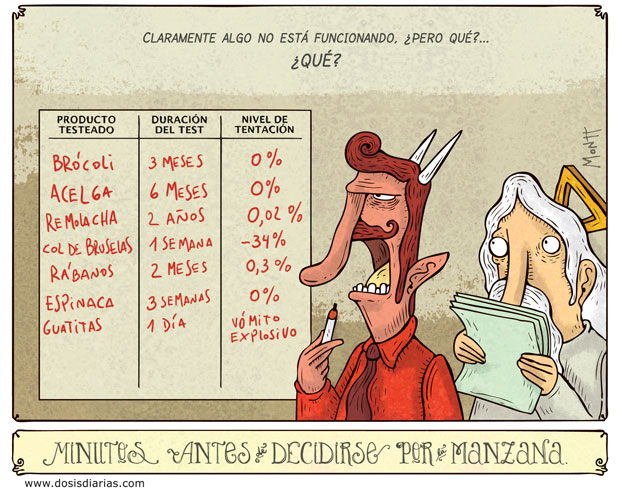 CLARAMENTE ALGO NO ESTÁ FUNCIONANDO, ¿PERO QUÉ?...
¿QUÉ?
PRODUCTO TESTEADO DURACIÓN DEL TEST NIVEL DE TENTACIÓN
BRÓCOLI 3 MESES 0%
ACELGA 6 MESES 0%
REMOLACHA 2 AÑOS 0,02%
COL DE BRUSELAS 1 SEMANA -34%
RÁBANOS 2 MESES 0,3%
ESPINACA 3 SEMANAS 0%
GUATITAS 1 DÍA VÓMITO EXPLOSIVO
MONTT
MINUTOS ANTES DE DECIDIRSE POR LA MANZANA.
www.dosisdiarias.com